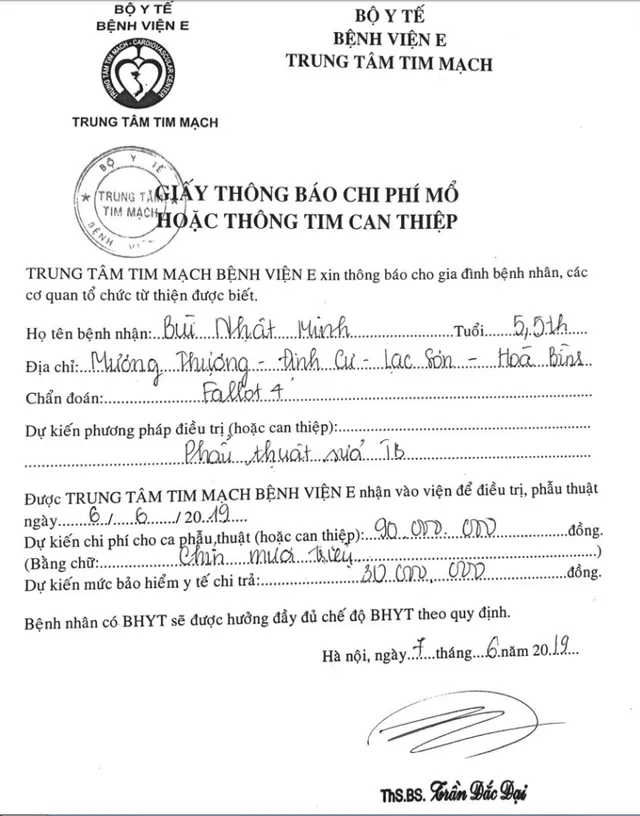 BỘ Y TẾ
BỆNH VIỆN E
TRUNG TÂM TIM MẠCH - CARDIOVASCULAR CENTER
TRUNG TÂM TIM MẠCH
BỘ Y TẾ
BỆNH VIỆN E
TRUNG TÂM TIM MẠCH
BỘ Y TẾ
TRUNG TÂM
TIM MẠCH
BỆNH VIỆN
GIẤY THÔNG BÁO CHI PHÍ MỔ
HOẶC THÔNG TIM CAN THIỆP
TRUNG TÂM TIM MẠCH BỆNH VIỆN E xin thông báo cho gia đình bệnh nhân, các
cơ quan tổ chức từ thiện được biết.
Họ tên bệnh nhân: Bùi Nhật Minh Tuổi 5,5th
Địa chỉ: Mường Thượng - Định Cư - Lạc Sơn - Hoà Bình
Chẩn đoán: Fallot 4
Dự kiến phương pháp điều trị (hoặc can thiệp):
Phẫu thuật sửa TB
Được TRUNG TÂM TIM MẠCH BỆNH VIỆN E nhận vào viện để điều trị, phẫu thuật
ngày 6/6/2019
Dự kiến chi phí cho ca phẫu thuật (hoặc can thiệp): 90.000.000 đồng.
(Bằng chữ: Chín mươi triệu)
Dự kiến mức bảo hiểm y tế chi trả: 30.000.000 đồng.
Bệnh nhân có BHYT sẽ được hưởng đầy đủ chế độ BHYT theo quy định.
Hà nội, ngày 7 tháng 6 năm 2019
ThS.BS. Trần Đắc Đại